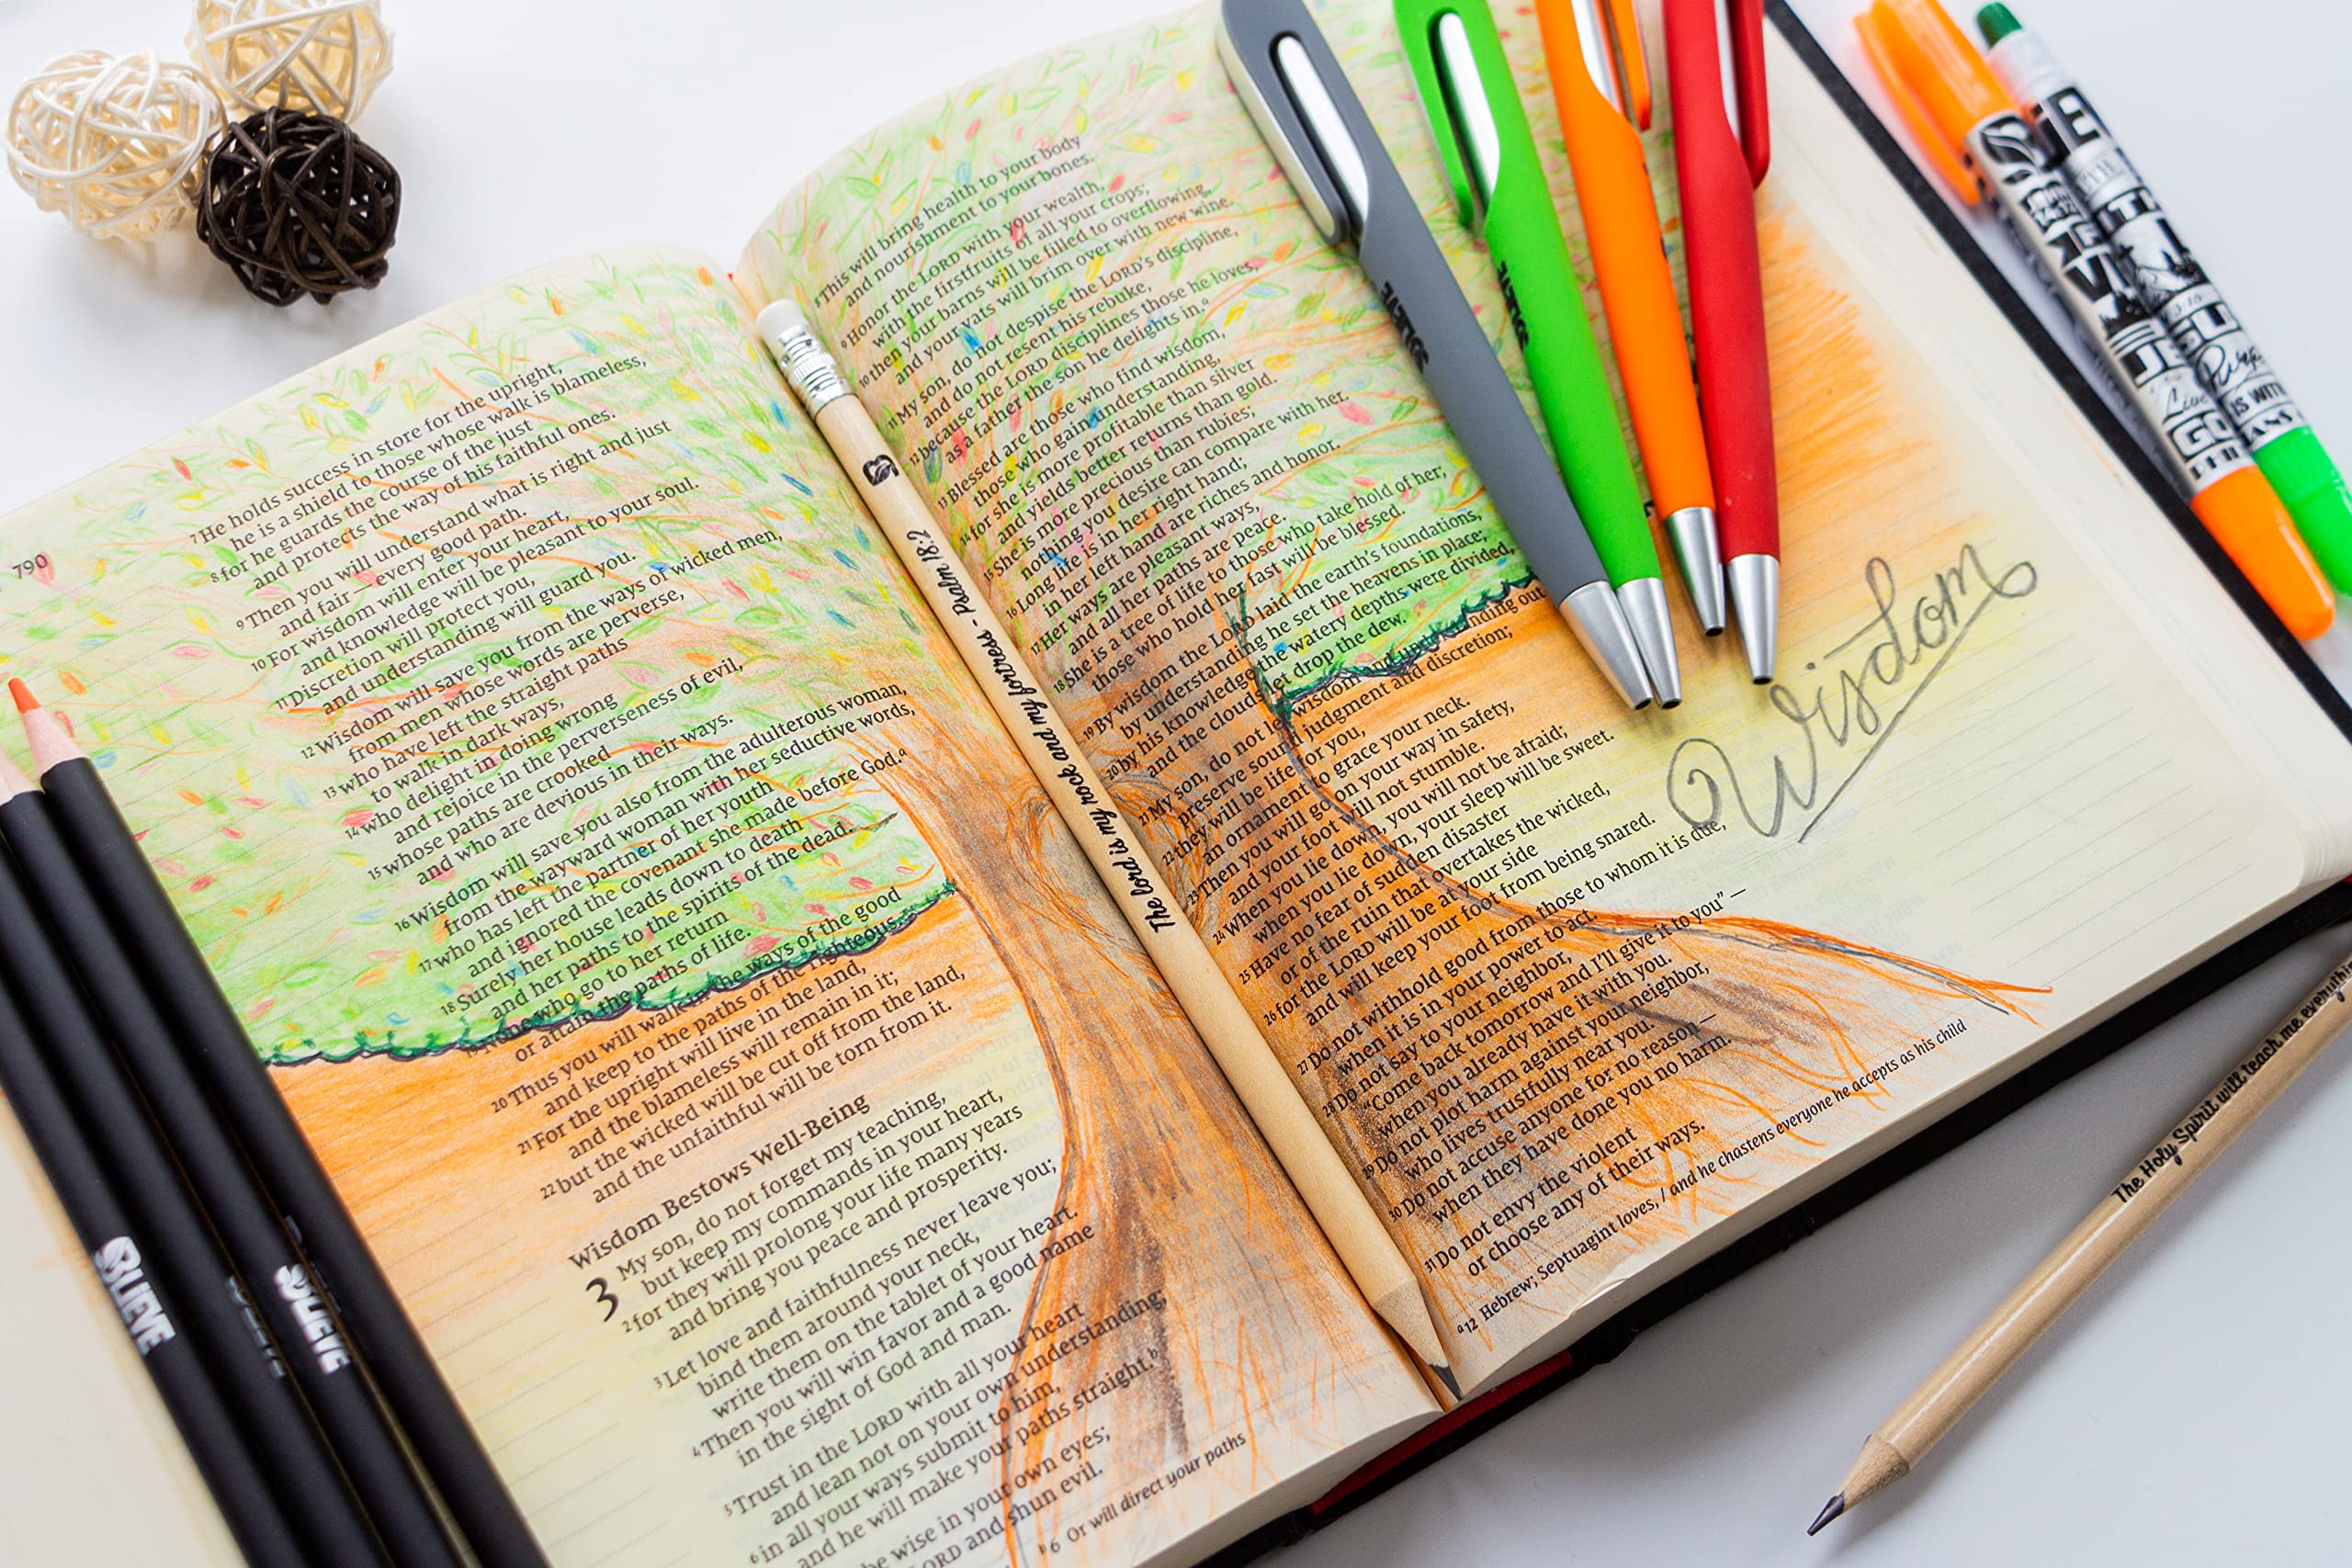 790
7 He holds success in store for the upright,
he is a shield to those whose walk is blameless,
8 for he guards the course of the just
and protects the way of his faithful ones.
9 Then you will understand what is right and just
and fair—every good path.
10 For wisdom will enter your heart,
and knowledge will be pleasant to your soul.
11 Discretion will protect you,
and understanding will guard you.
12 Wisdom will save you from the ways of wicked men,
from men whose words are perverse,
13 who have left the straight paths
to walk in dark ways,
14 who delight in doing wrong
and rejoice in the perverseness of evil,
15 whose paths are crooked
and who are devious in their ways.
16 Wisdom will save you also from the adulterous woman,
from the wayward woman with her seductive words,
17 who has left the partner of her youth
and ignored the covenant she made before God.a
18 Surely her house leads down to death
and her paths to the spirits of the dead.
19 None who go to her return
or attain the paths of life.
20 Thus you will walk in the ways of the good
and keep to the paths of the righteous.
21 For the upright will live in the land,
and the blameless will remain in it;
22 but the wicked will be cut off from the land,
and the unfaithful will be torn from it.
Wisdom Bestows Well-Being
3 My son, do not forget my teaching,
but keep my commands in your heart,
2 for they will prolong your life many years
and bring you peace and prosperity.
3 Let love and faithfulness never leave you;
bind them around your neck,
write them on the tablet of your heart.
4 Then you will win favor and a good name
in the sight of God and man.
5 Trust in the LORD with all your heart
and lean not on your own understanding;
6 in all your ways submit to him,
and he will make your paths straight.b
be wise in your own eyes;
LORD and shun evil.
b 6 Or will direct your paths
8 This will bring health to your body
and nourishment to your bones.
9 Honor the LORD with your wealth,
with the firstfruits of all your crops;
10 then your barns will be filled to overflowing,
and your vats will brim over with new wine.
11 My son, do not despise the LORD's discipline,
and do not resent his rebuke,
12 because the LORD disciplines those he loves,
as a father the son he delights in.a
13 Blessed are those who find wisdom,
those who gain understanding,
14 for she is more profitable than silver
and yields better returns than gold.
15 She is more precious than rubies;
nothing you desire can compare with her.
16 Long life is in her right hand;
in her left hand are riches and honor.
17 Her ways are pleasant ways,
and all her paths are peace.
18 She is a tree of life to those who take hold of her;
those who hold her fast will be blessed.
19 By wisdom the LORD laid the earth's foundations,
by understanding he set the heavens in place;
20 by his knowledge the watery depths were divided,
and the clouds let drop the dew.
21 My son, do not let wisdom and understanding out
preserve sound judgment and discretion;
22 they will be life for you,
an ornament to grace your neck.
23 Then you will go on your way in safety,
and your foot will not stumble.
24 When you lie down, you will not be afraid;
when you lie down, your sleep will be sweet.
25 Have no fear of sudden disaster
or of the ruin that overtakes the wicked,
26 for the LORD will be at your side
and will keep your foot from being snared.
27 Do not withhold good from those to whom it is due,
when it is in your power to act.
28 Do not say to your neighbor,
"Come back tomorrow and I'll give it to you"—
when you already have it with you.
29 Do not plot harm against your neighbor,
who lives trustfully near you.
30 Do not accuse anyone for no reason—
when they have done you no harm.
31 Do not envy the violent
or choose any of their ways.
a 12 Hebrew; Septuagint loves, / and he chastens everyone he accepts as his child
Wisdom
The lord is my rock and my fortress - Psalm 18:2
The Holy Spirit will teach me everything
BLIEVE
BLIEVE